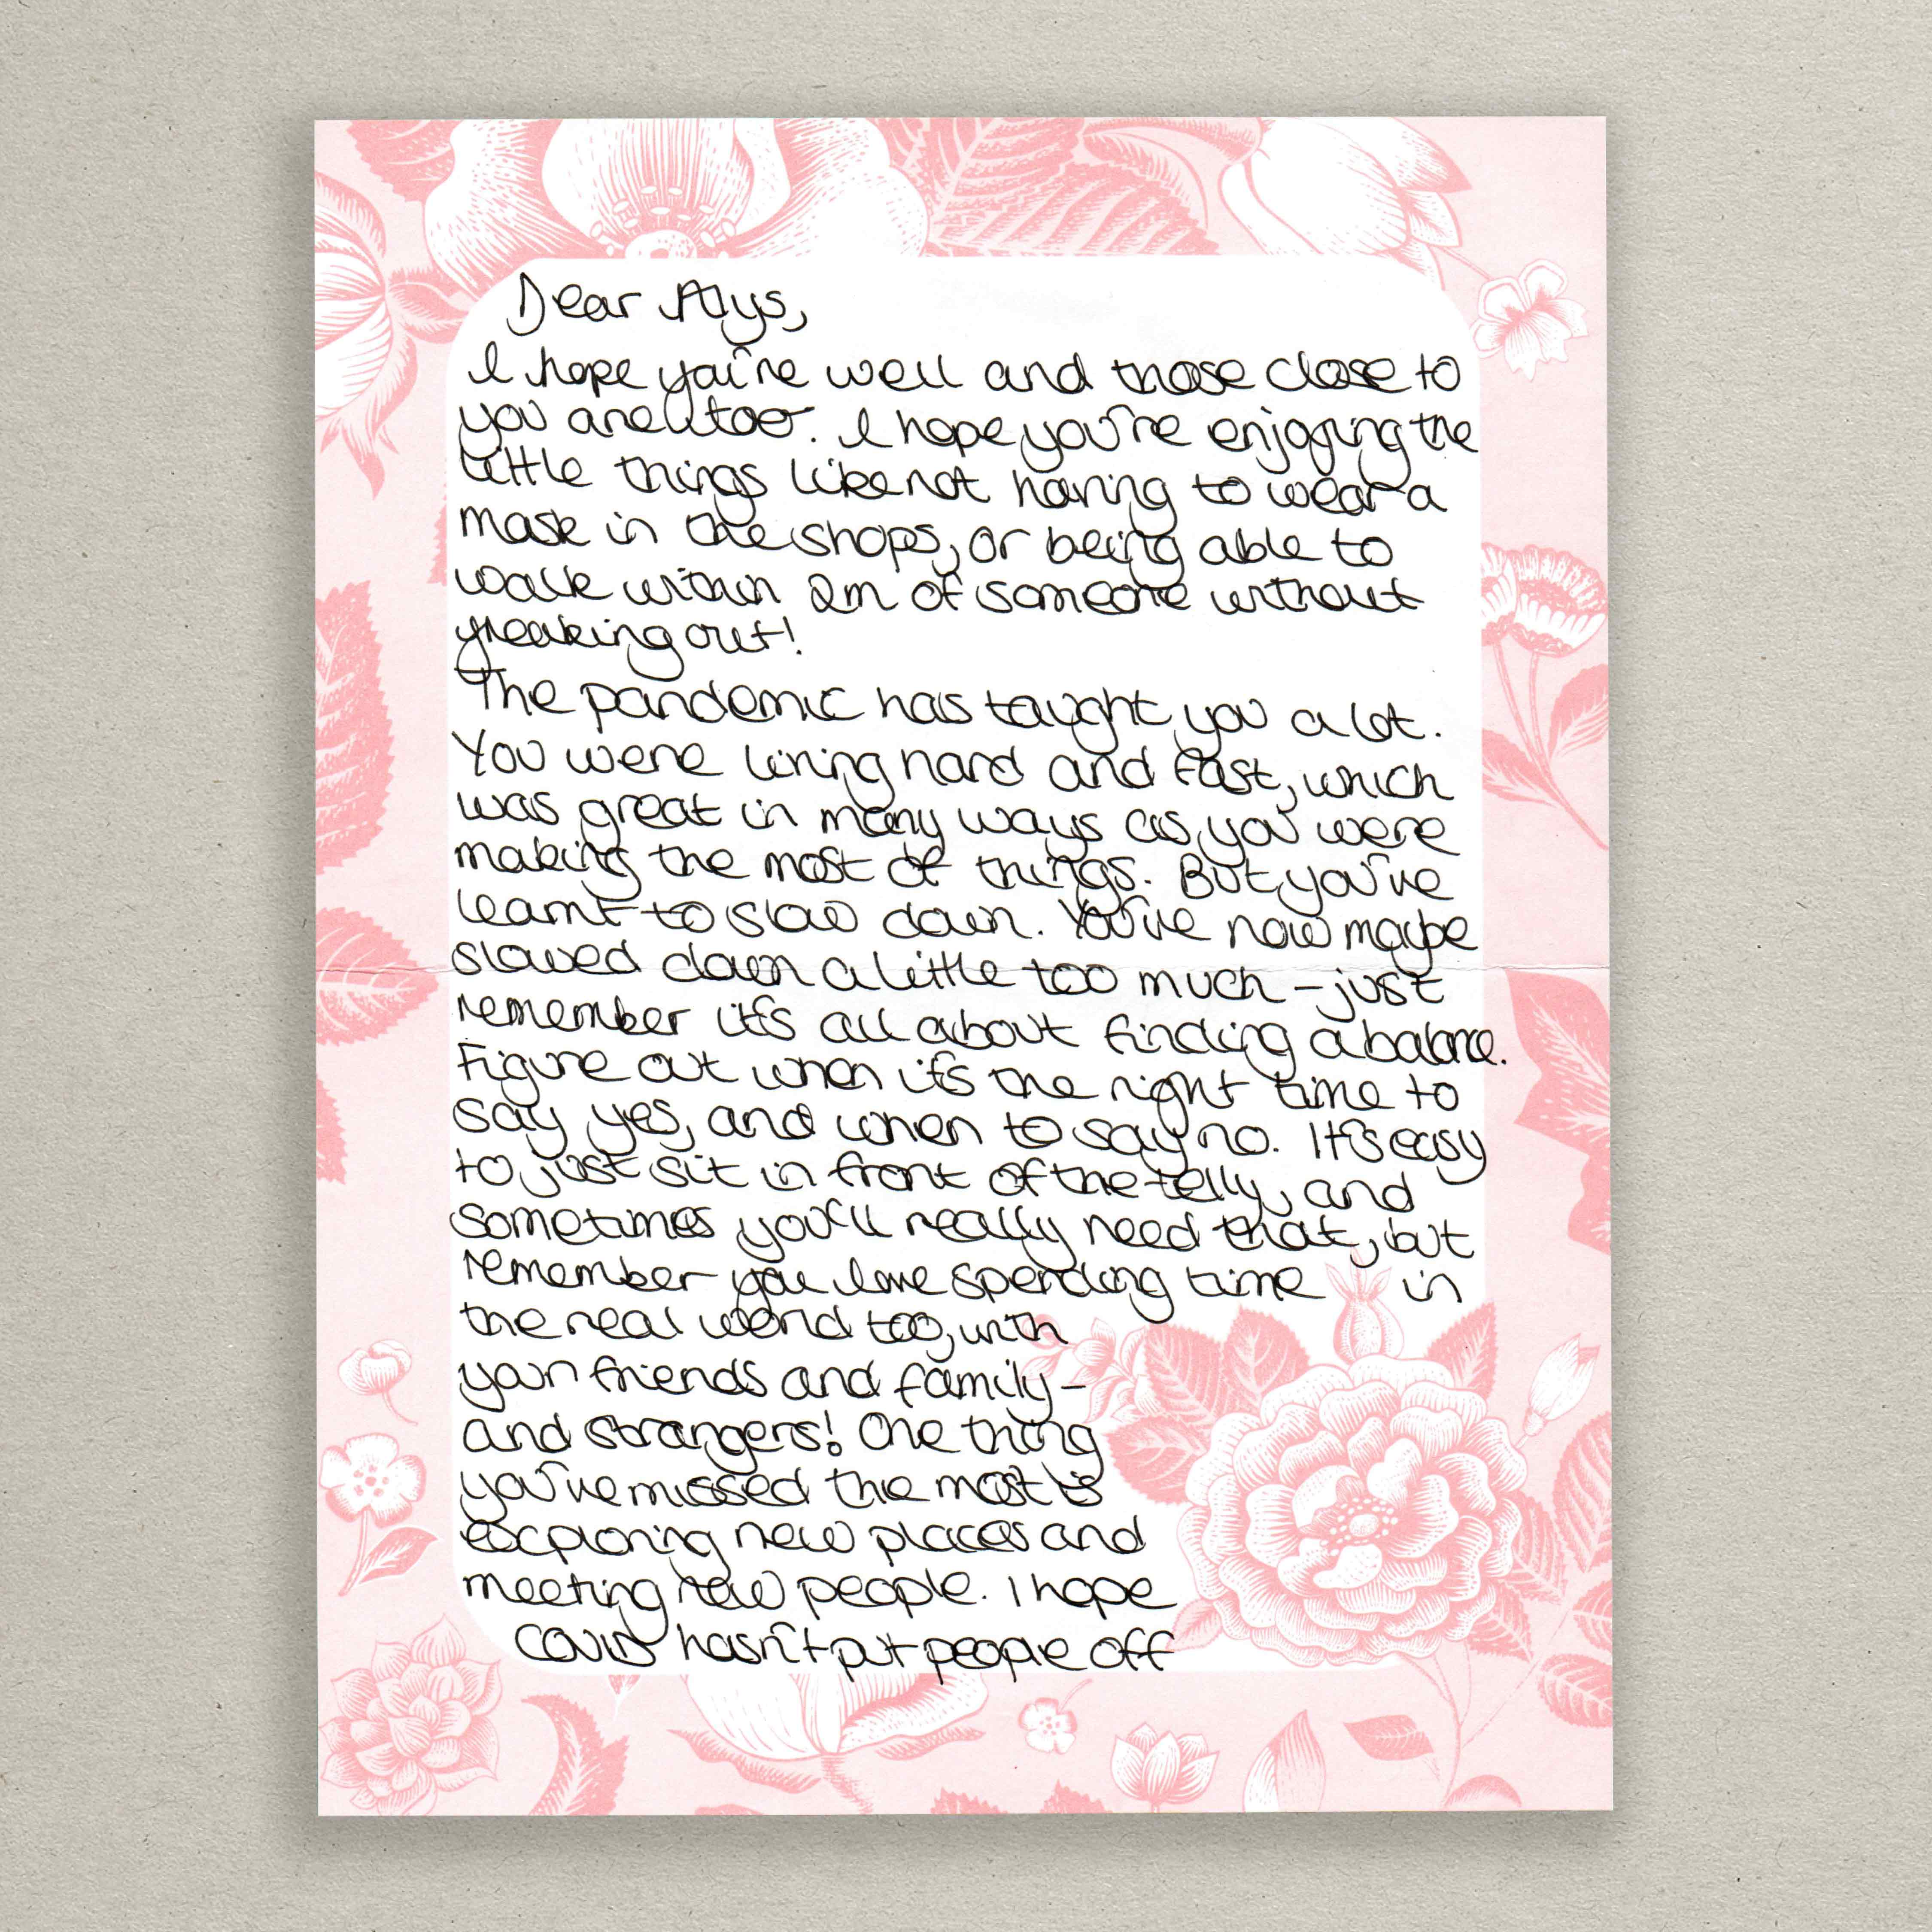 Dear Alys,
I hope you're well and those close to
you are too. I hope you're enjoying the
little things like not having to wear a
mask in the shops, or being able to
walk within 2m of someone without
freaking out!
The pandemic has taught you a lot.
You were living hard and fast, which
was great in many ways as you were
making the most of things. But you've
learnt to slow down. You've now maybe
slowed down a little too much – just
remember it's all about finding a balance.
Figure out when it's the right time to
say yes, and when to say no. It's easy
to just sit in front of the telly, and
sometimes you'll really need that, but
remember you love spending time in
the real world too, with
your friends and family –
and strangers! One thing
you've missed the most is
exploring new places and
meeting new people. I hope
COVID hasn't put people off